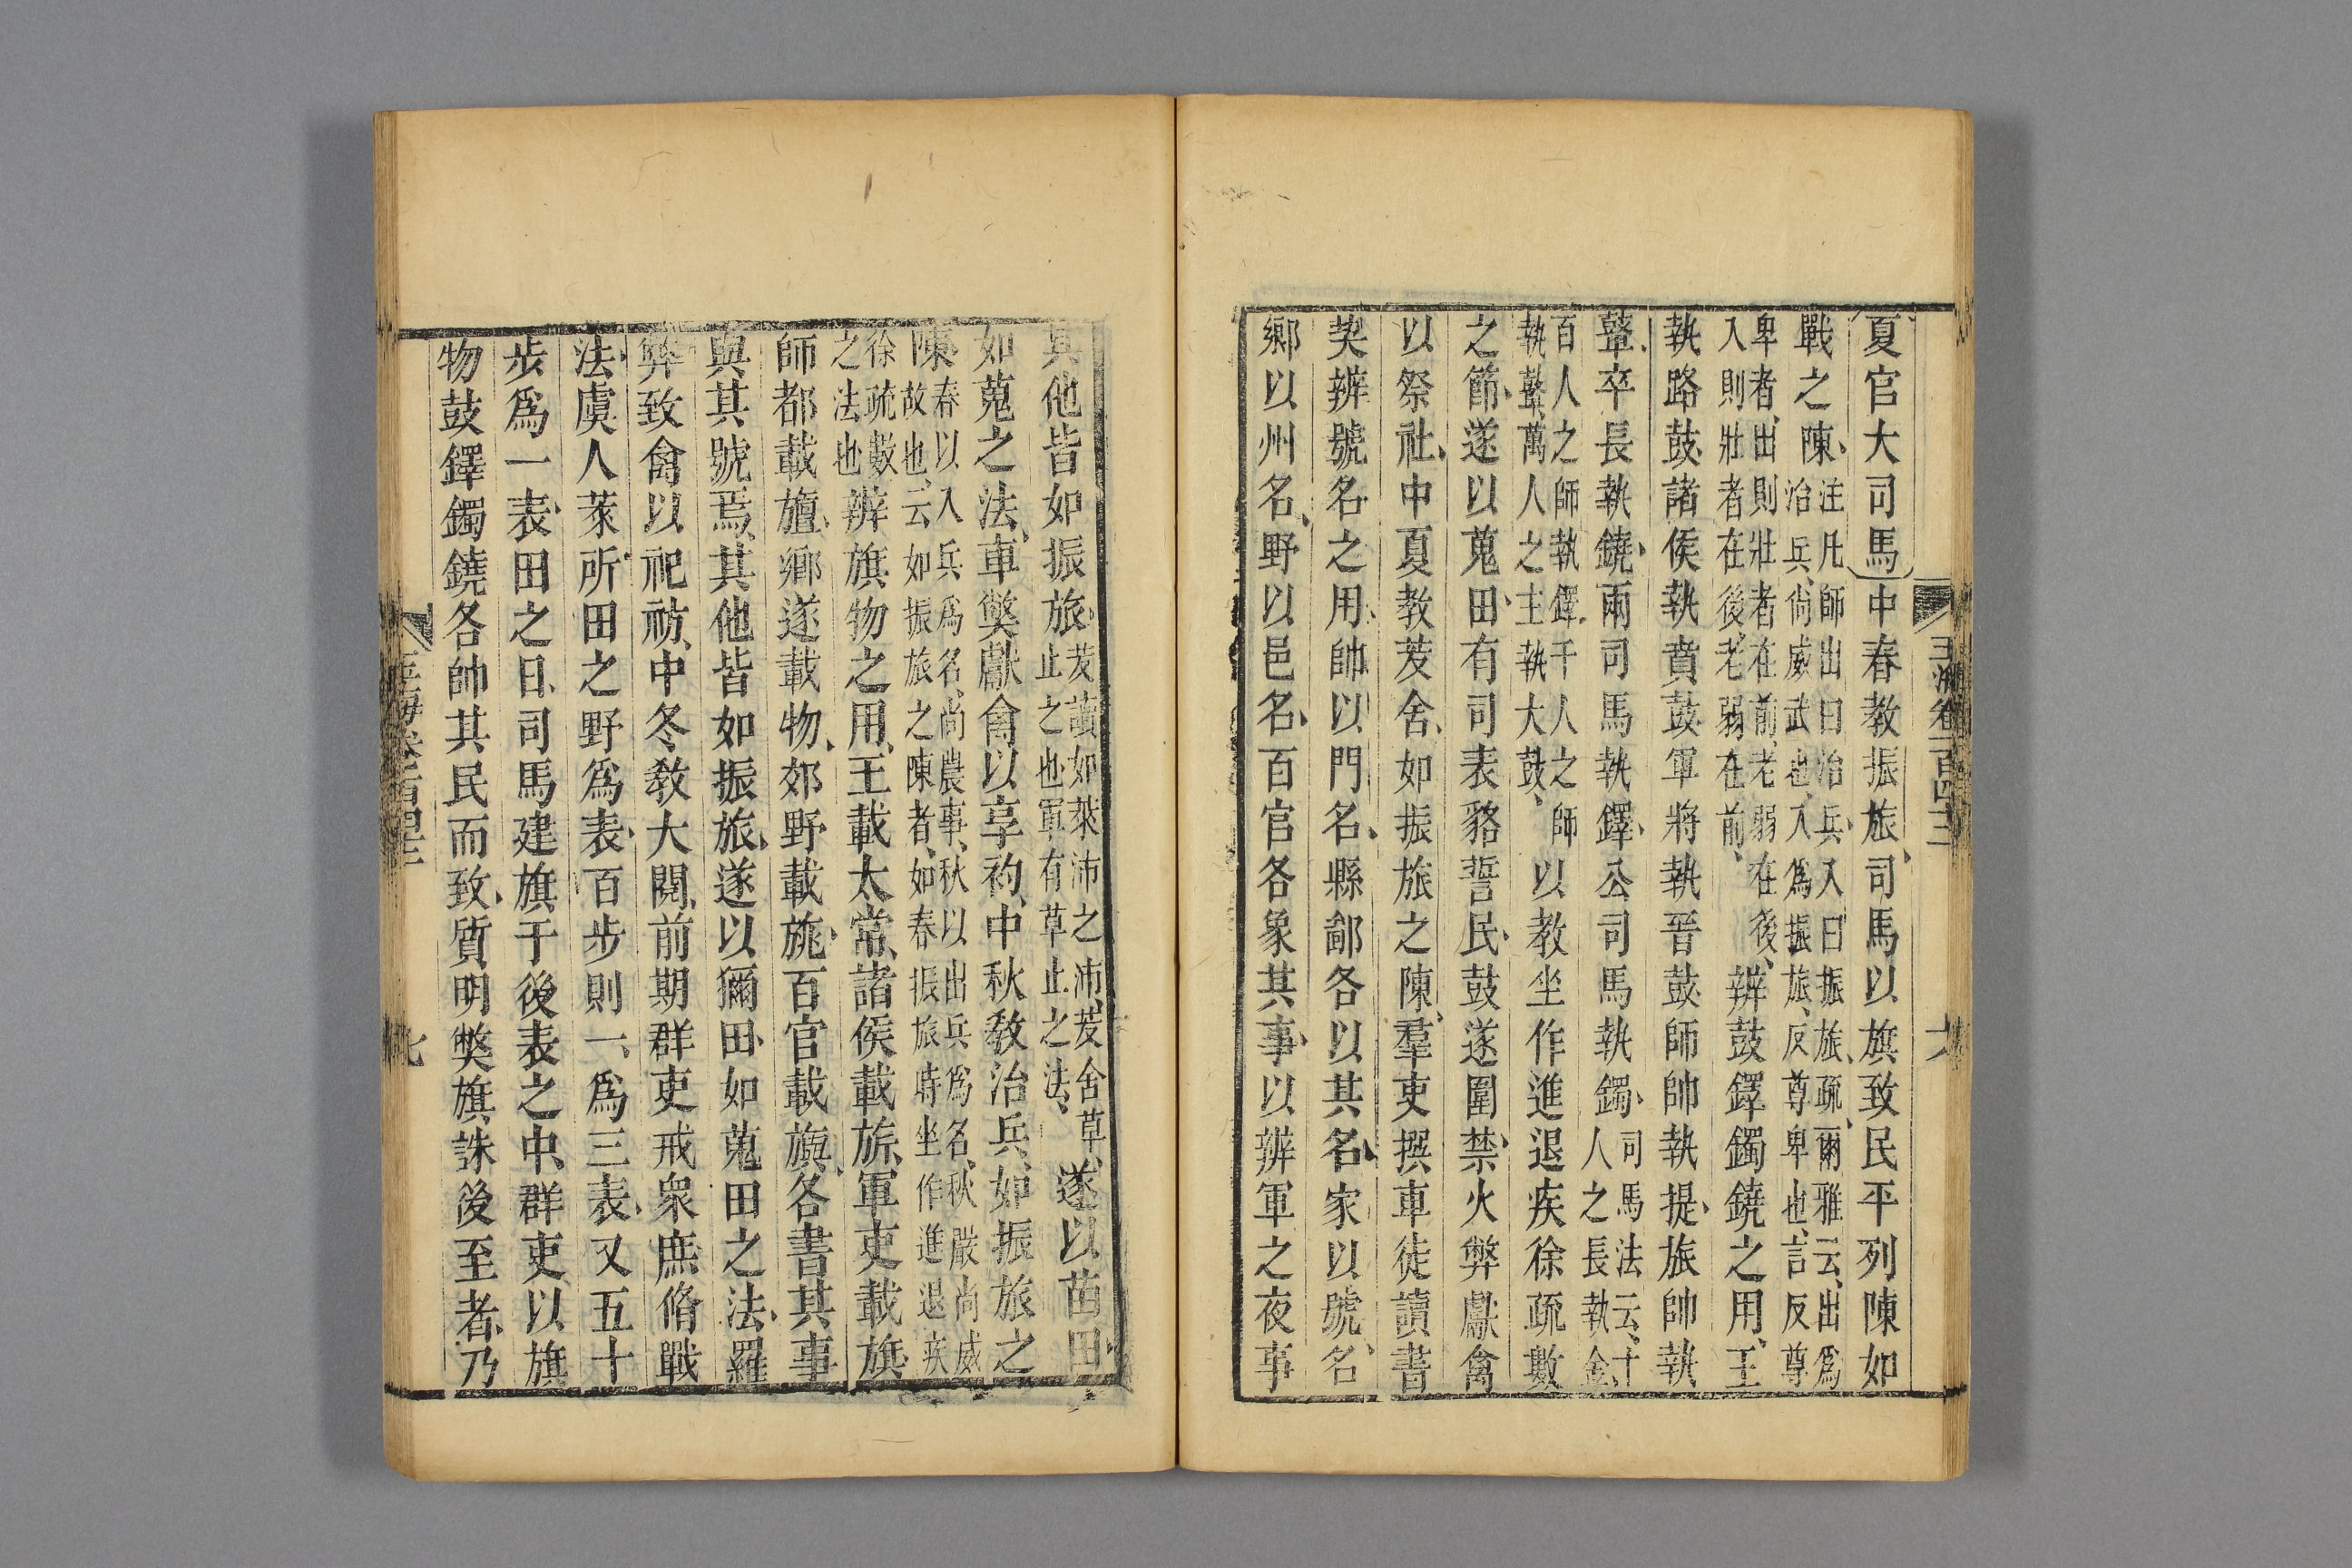 玉海卷百四十三
夏官大司馬中春教振旅、司馬以旗致民平列陳如
戰之陳、注凡師出曰治兵、入曰振旅、疏、爾雅云、出爲
治兵、尙威武也、入爲振旅、反尊卑也、言反尊
卑者、出則壯者在前、老弱在後、
入則壯者在後、老弱在前、辨鼓鐸鐲鐃之用、王
執路鼓、諸侯執賁鼓、軍將執晉鼓、師帥執提、旅帥執
鼙、卒長執鐃、兩司馬執鐸、公司馬執鐲、司馬法云、十
人之長執金、
百人之師執鐸、千人之師
執鼙、萬人之主執大鼓、以教坐作進退疾徐疏數
之節、遂以蒐田、有司表貉誓民、鼓遂圍禁、火弊獻禽
以祭社、中夏教茇舍、如振旅之陳、羣吏撰車徒讀書
契辨號名之用、帥以門名、縣鄙各以其名、家以號名
鄉以州名、野以邑名、百官各象其事、以辨軍之夜事
其他皆如振旅、茇讀如萊沛之沛、茇舍草、
止之也軍有草止之法、遂以苗田、
如蒐之法、車獘獻禽以享礿、中秋教治兵、如振旅之
陳、春以入兵爲名、尚農事、秋以出兵爲名、秋嚴尚威
故也、云如振旅之陳者、如春振旅時坐作進退疾
徐疏數
之法也、辨旗物之用、王載太常、諸侯載旂、軍吏載旗、
師都載旜、鄉遂載物、郊野載旐、百官載旟、各書其事
與其號焉、其他皆如振旅、遂以獮田、如蒐田之法、羅
弊致禽以祀祊、中冬教大閱、前期群吏戒衆庶脩戰
法、虞人萊所田之野爲表、百步則一、爲三表、又五十
步爲一表、田之日、司馬建旗于後表之中、群吏以旗
物鼓鐸鐲鐃各帥其民而致、質明獘旗、誅後至者、乃
玉海卷百四十三
七